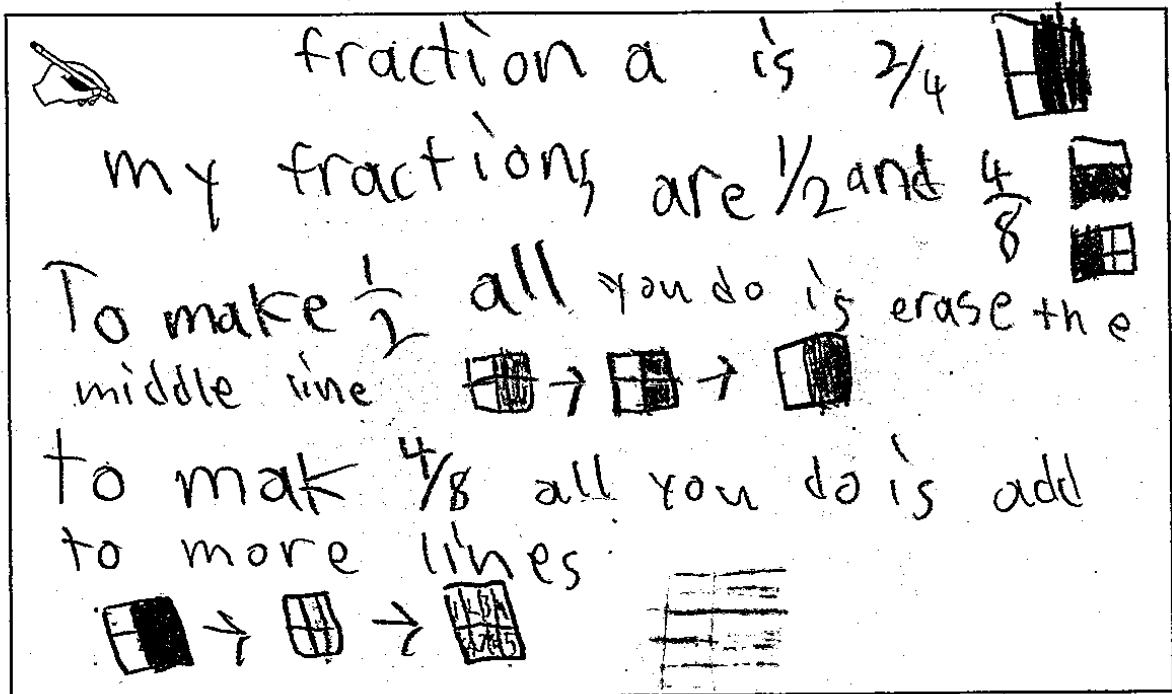 fraction a is 2/4
my fractions are 1/2 and 4/8
To make 1/2 all you do is erase the
middle line
to mak 4/8 all you do is add
to more lines